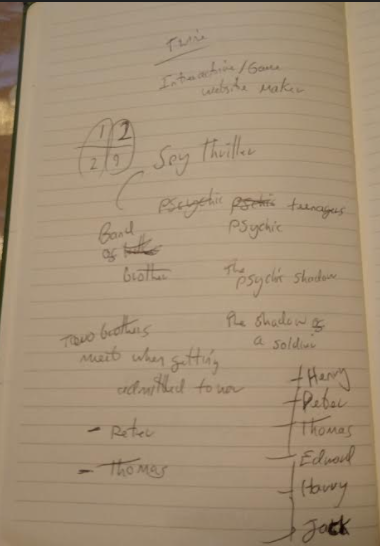 Twin
Interactive/Game
website maker
1 2
2 9
Spy Thriller
psychic teenagers
psychic
Band
of
brother
The
psychic shadow
Two brothers
meet when getting
admitted to war
The shadow of
a soldier
- Peter
- Thomas
Henry
Peter
Thomas
Edward
Harry
Jack